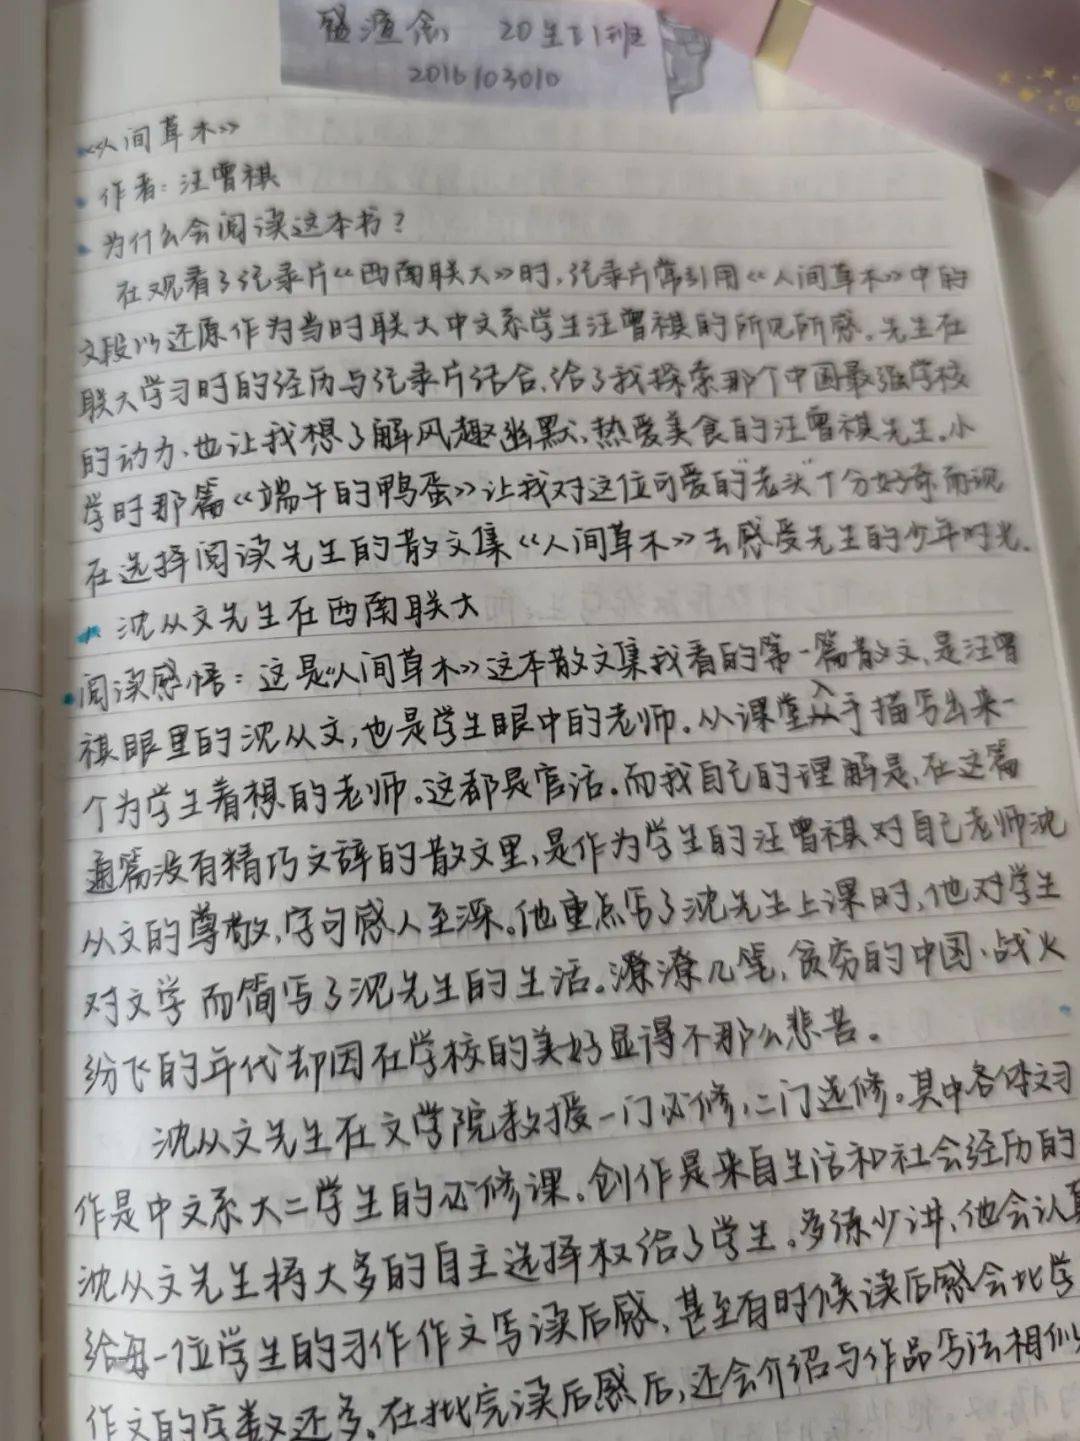 20生工1班
2016103010
《人间草木》
作者：汪曾祺
为什么会阅读这本书？
在观看了纪录片《西南联大》时，纪录片常引用《人间草木》中的
文段以还原作为当时联大中文系学生汪曾祺的所见所感。先生在
联大学习时的经历与纪录片结合，给了我探索那个中国最强学校
的动力、也让我想了解风趣幽默、热爱美食的汪曾祺先生。小
学时那篇《端午的鸭蛋》让我对这位可爱的"老头"十分好奇而现
在选择阅读先生的散文集《人间草木》去感受先生的少年时光。
沈从文先生在西南联大
阅读感悟：这是《人间草木》这本散文集我看的第一篇散文，是汪曾
祺眼里的沈从文，也是学生眼中的老师。从课堂入手描写出来一
个为学生着想的老师。这都是官话。而我自己的理解是，在这篇
通篇没有精巧文辞的散文里，是作为学生的汪曾祺对自己老师沈
从文的尊敬，字句感人至深。他重点写了沈先生上课时，他对学生
对文学 而简写了沈先生的生活。潦潦几笔，贫穷的中国、战火
纷飞的年代却因在学校的美好显得不那么悲苦。
沈从文先生在文学院教授一门必修，二门选修。其中各体文习
作是中文系大二学生的必修课。创作是来自生活和社会经历的
沈从文先生将大多的自主选择权给了学生。多练少讲，他会认真
给每一位学生的习作作文写读后感，甚至有时候读后感会比学
作文的字数还多。在批完读后感后，还会介绍与作品写法相似